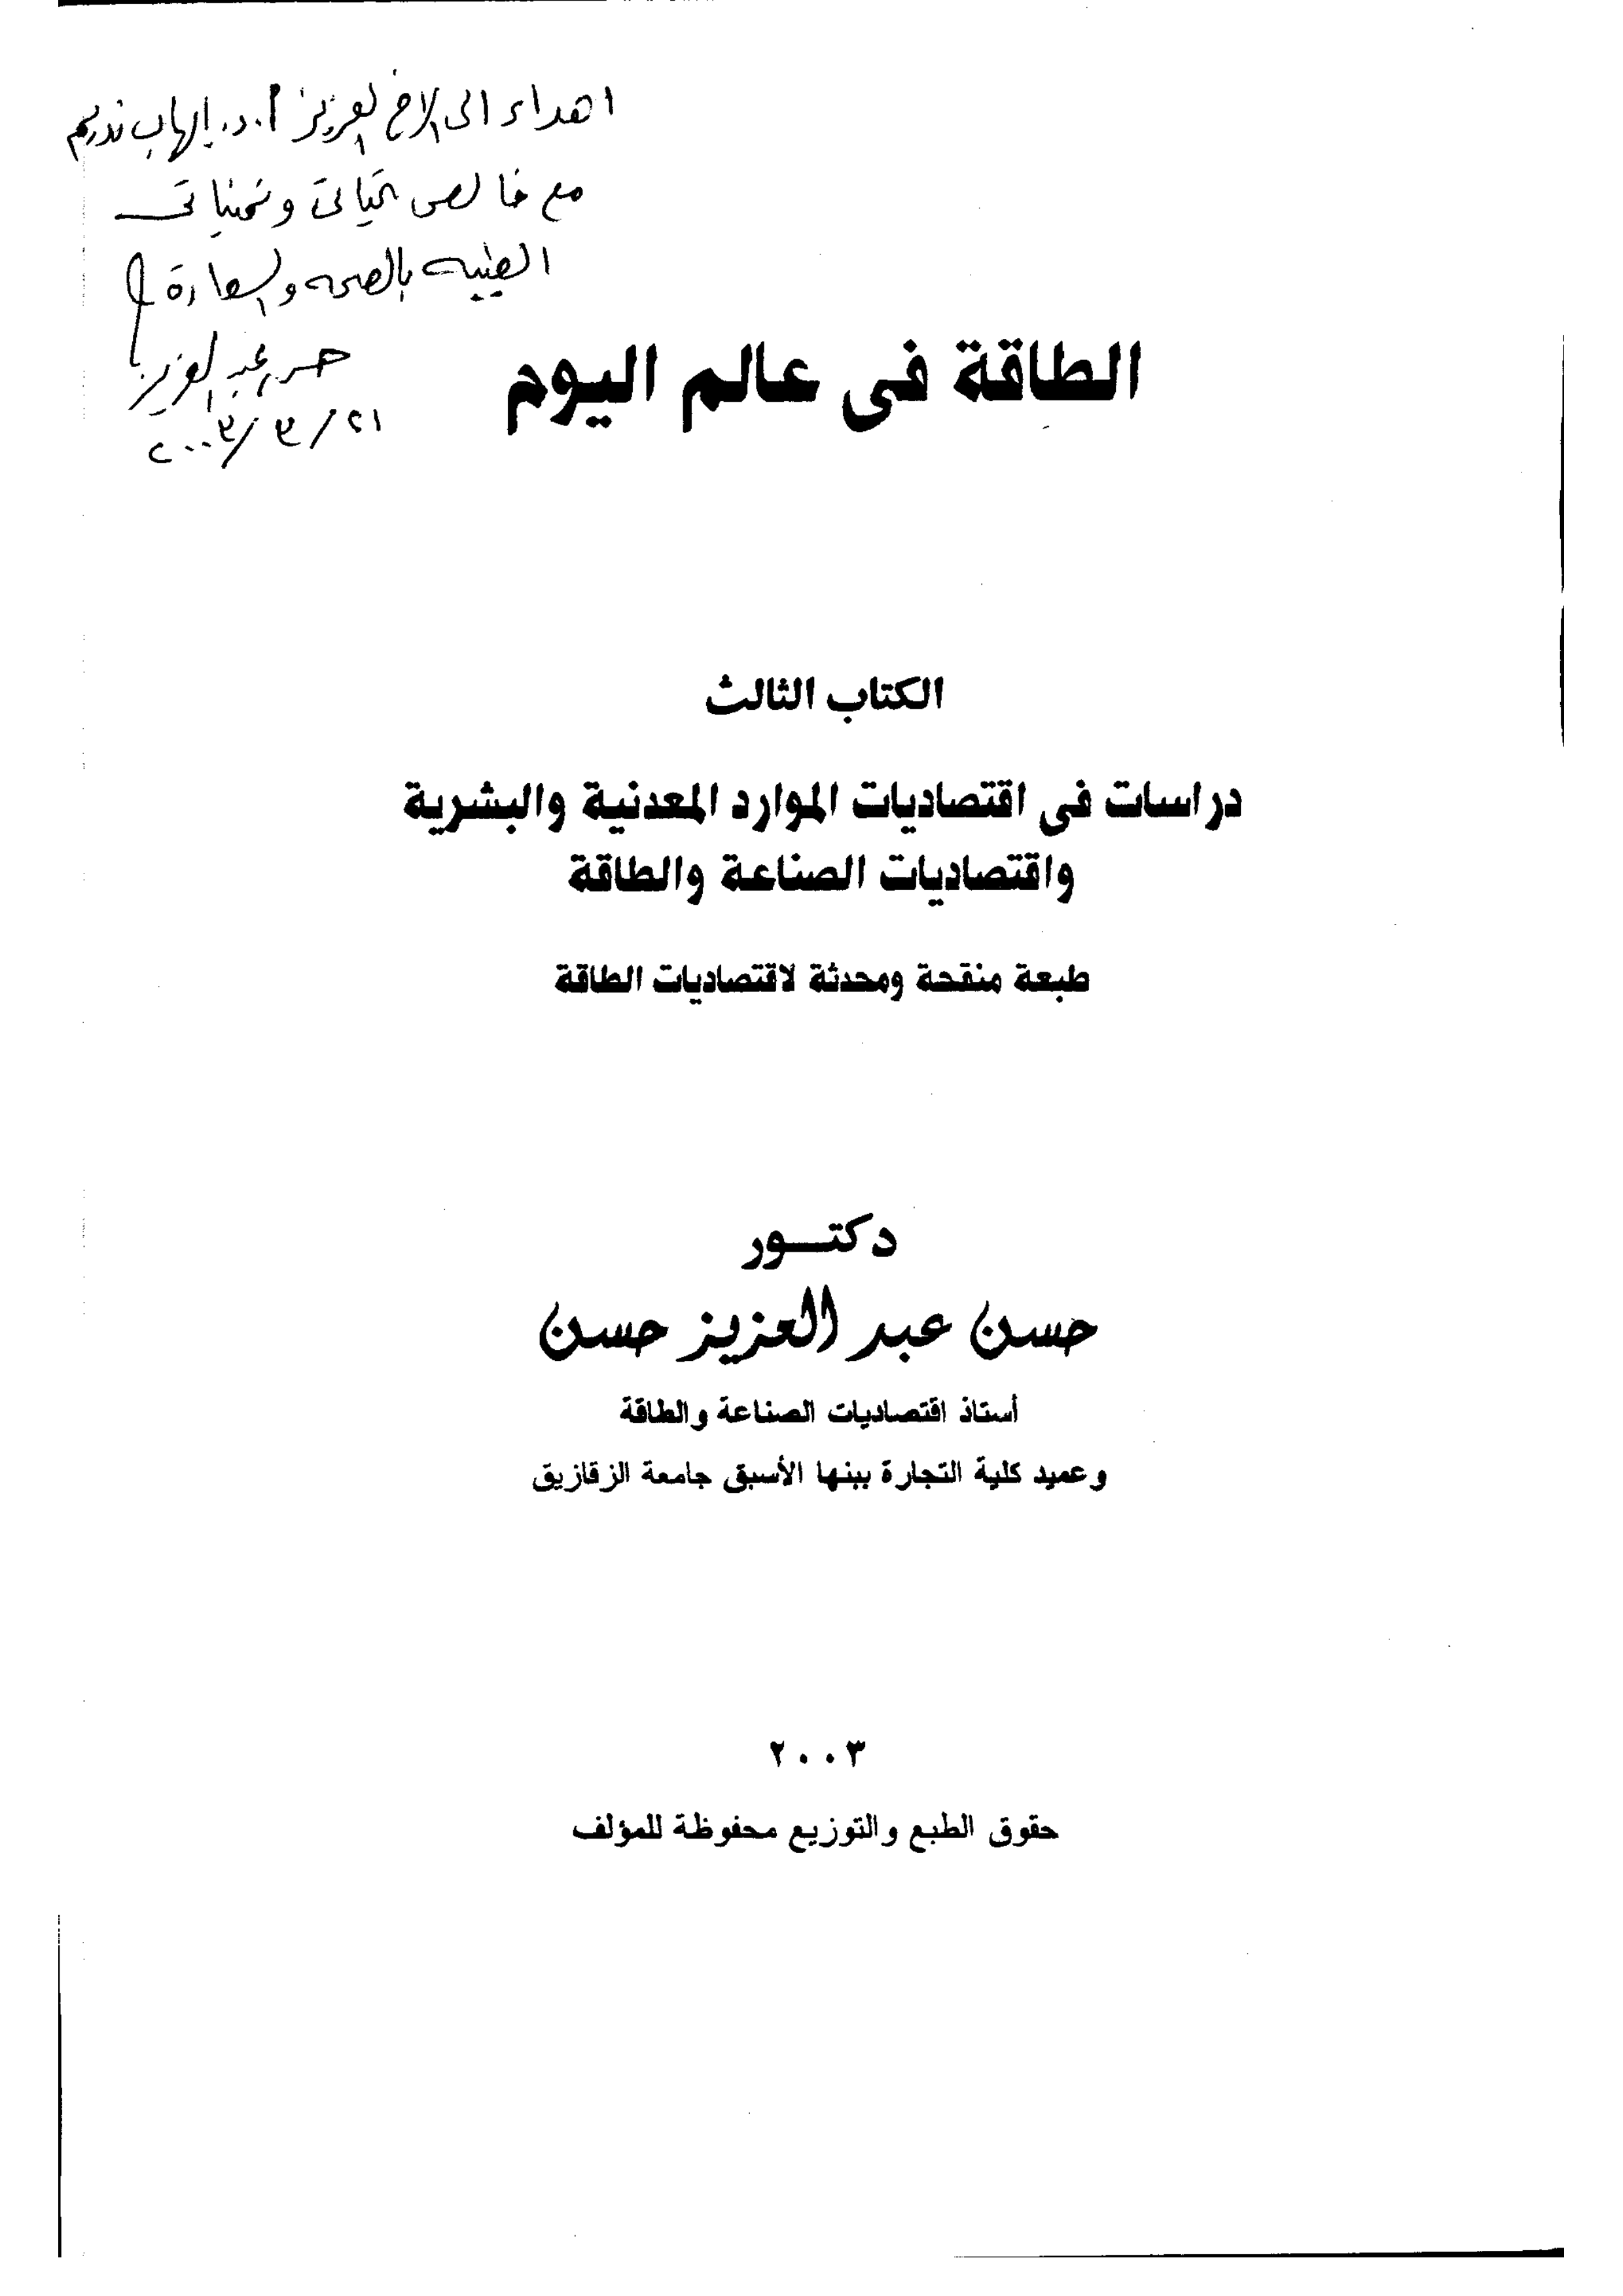 اهداء الى الاخ العزيز أ.د. إيهاب نديم
مع خالص تحياتى وتمنياتى
الطيبه بالصحه والسعادة
حسن عبد العزيز
٢١/٣/٢٠٠٣
الطاقة فى عالم اليوم
الكتاب الثالث
دراسات فى اقتصاديات الموارد المعدنية والبشرية
واقتصاديات الصناعة والطاقة
طبعة منقحة ومحدثة لاقتصاديات الطاقة
دكتـــور
حسن عبد العزيز حسن
أستاذ اقتصاديات الصناعة والطاقة
وعميد كلية التجارة ببنها الأسبق جامعة الزقازيق
٢٠٠٣
حقوق الطبع والتوزيع محفوظة للمؤلف